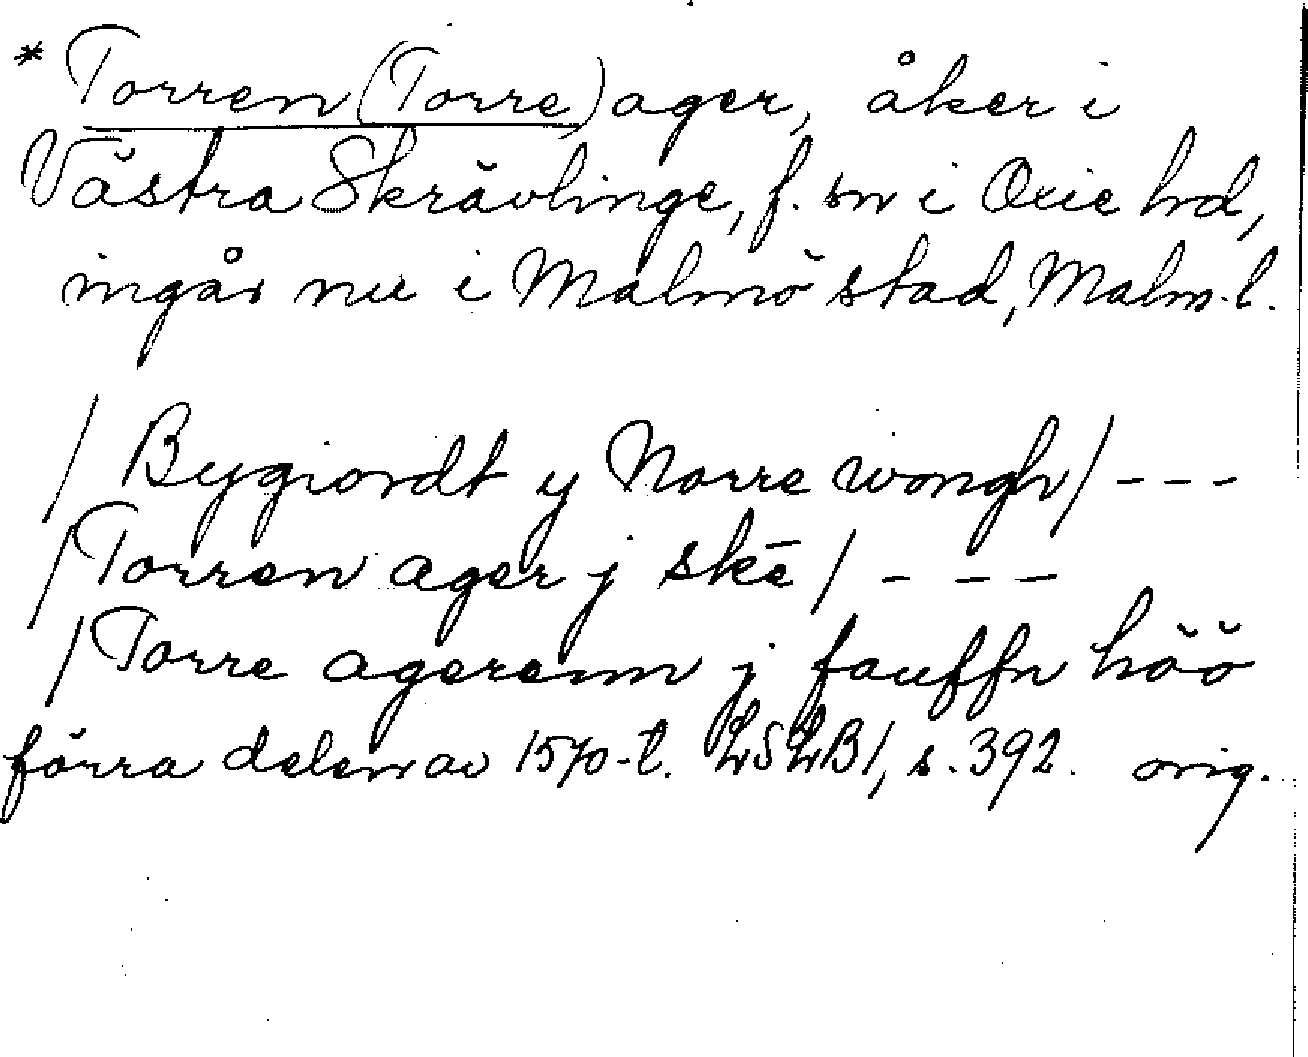 * Torren (Torre) ager, åker i
Västra Skrävlinge, f. sn i Oxie hd,
ingår nu i Malmö stad, Malm. l.
/ Bygiordt y Norre wongh / - - -
/ Torren ager j skē / - - -
/ Torre agerenn j fauffn höö
förra delen av 1570-t. LSLB1, s. 392. orig.